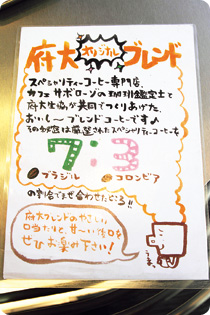 府大オリジナルブレンド
スペシャリティーコーヒー専門店
カフェ サボローゾの珈琲鑑定士と
府大生協が共同でつくりあげた、
おいし〜ブレンドコーヒーです♪
その秘密は厳選されたスペシャリティーコーヒーを
7:3
ブラジル コロンビア
の割合でまぜ合わせたところ!!
府大ブレンドのやさしい
口当たりと、甘〜い後口を
ぜひお楽み下さい!